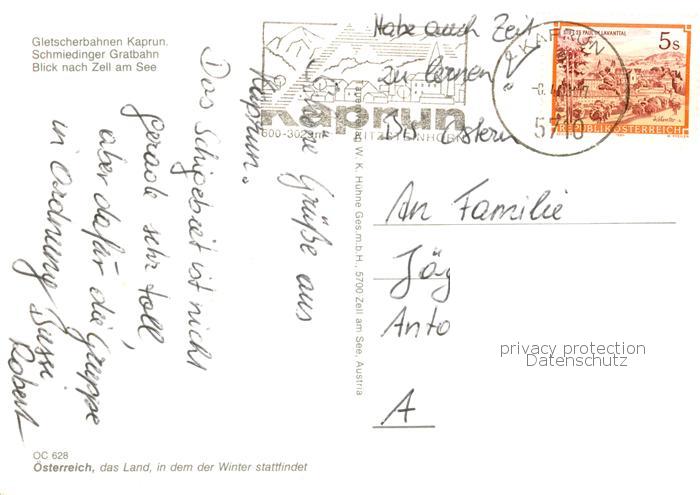 Gletscherbahnen Kaprun.
Schmiedinger Gratbahn
Blick nach Zell am See
Schöne Grüße aus
Kaprun.
Das Schigebiet ist nicht
gerade sehr toll,
aber dafür die Gruppe
in Ordnung
Bussi
Robert
Habe auch Zeit
zu lernen!
Bis Ostern
Kaprun
KITZSTEINHORN
KAPRUN
5710
5s
STIFT ST. PAUL IM LAVANTTAL
REPUBLIK ÖSTERREICH
An Familie
Jäg
Anto
A
privacy protection
Datenschutz
W. K. Hühne Ges.m.b.H., 5700 Zell am See, Austria
OC 628
Österreich, das Land, in dem der Winter stattfindet